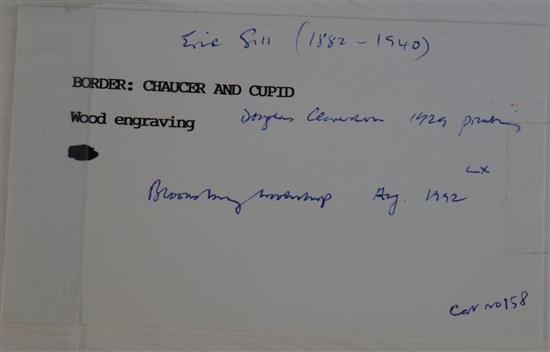 Eric Gill (1882 - 1940)
BORDER: CHAUCER AND CUPID
Wood engraving Douglas Cleverdon 1929 printing
LX
Bloomsbury Workshop Aug. 1992
Cat no 158